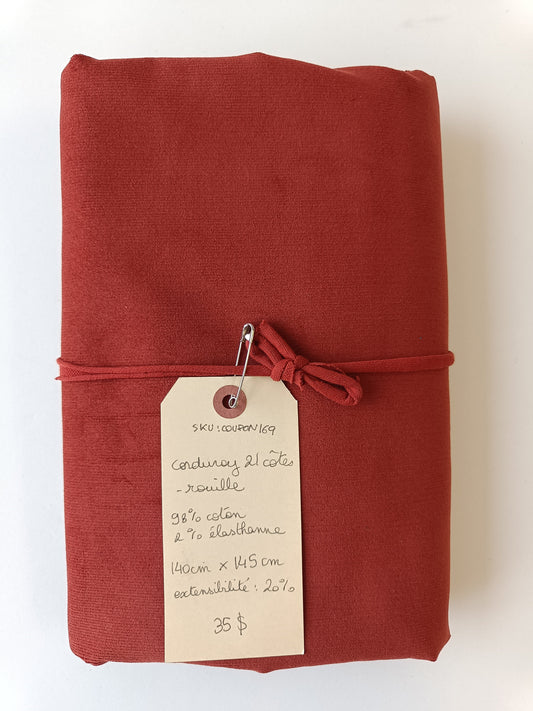 SKU: COUPON169
corduroy 21 côtes
- rouille
98% coton
2% élasthanne
140cm x 145cm
extensibilité: 20%
35 $